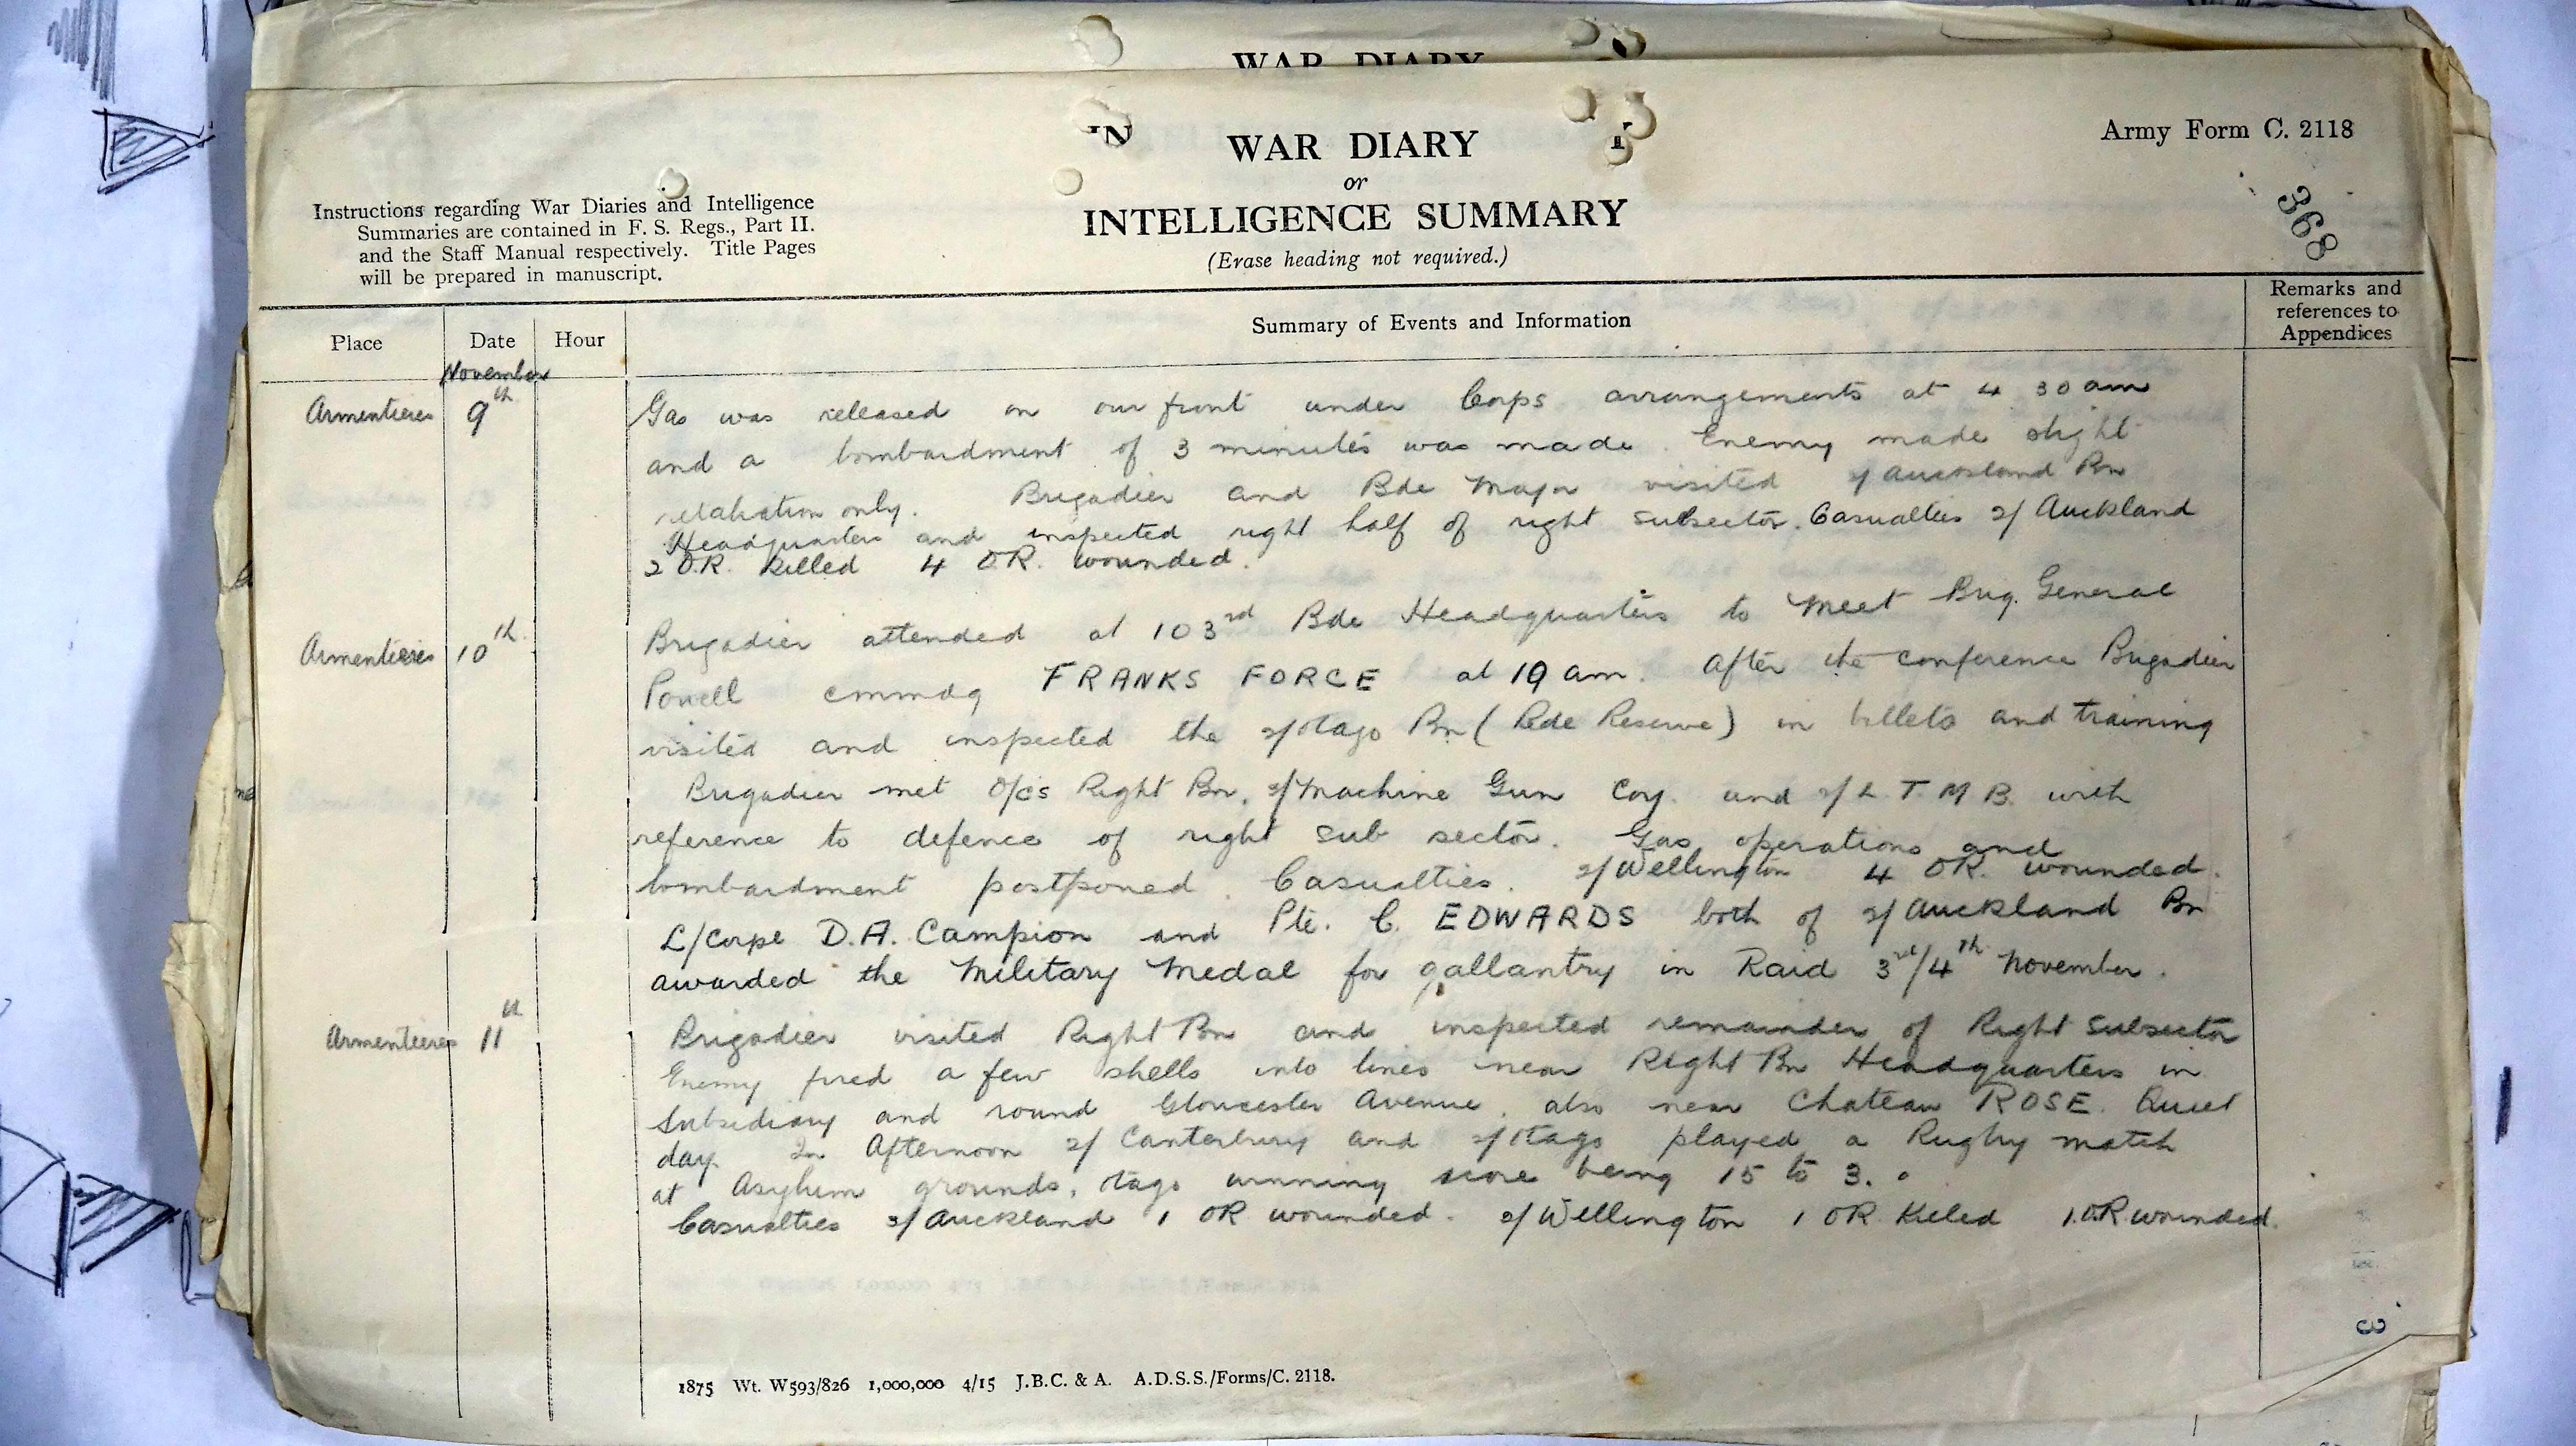 WAR DIARY
WAR DIARY
or
INTELLIGENCE SUMMARY
(Erase heading not required.)
Army Form C. 2118
368
Instructions regarding War Diaries and Intelligence
Summaries are contained in F. S. Regs., Part II.
and the Staff Manual respectively. Title Pages
will be prepared in manuscript.
Place
Date
Hour
Summary of Events and Information
Remarks and
references to
Appendices
November
Armentieres 9th Gas was released on our front under Corps arrangements at 4 30 am
and a bombardment of 3 minutes was made. Enemy made slight
retaliation only. Brigadier and Bde Major visited Auckland Bn
Headquarters and inspected right half of right subsector. Casualties 2/ Auckland
2 O.R. killed 4 O.R. wounded.
Armentieres 10th Brigadier attended at 103rd Bde Headquarters to meet Brig. General
Powell cmmdg FRANKS FORCE at 10 am. After the conference Brigadier
visited and inspected the 2/Otago Bn (Bde Reserve) in billets and training
Brigadier met O/Cs Right Bn, 2/Machine Gun Coy. and 2/L.T.M.B. with
reference to defence of right sub sector. Gas operations and
bombardment postponed. Casualties. 2/Wellington 4 OR. wounded.
L/Corpl D.A. Campion and Pte. C. EDWARDS both of 2/Auckland Bn
awarded the Military Medal for gallantry in Raid 3rd/4th November.
Armentieres 11th Brigadier visited Right Bn and inspected remainder of Right Subsector
Enemy fired a few shells into lines near Right Bn Headquarters in
Subsidiary and round Gloucester Avenue, also near Chateau ROSE. Quiet
day. In Afternoon 2/ Canterbury and 2/Otago played a Rugby match
at Asylum grounds, Otago winning score being 15 to 3.
Casualties 2/Auckland 1 OR wounded. 2/Wellington 1 OR Killed 1.O.R wounded.
3
1875 Wt. W593/826 1,000,000 4/15 J.B.C. & A. A.D.S.S./Forms/C. 2118.